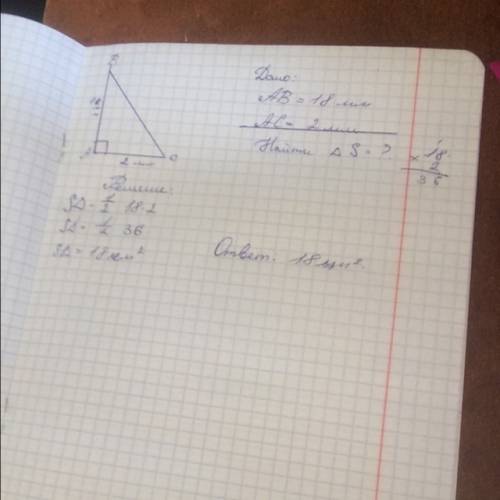 B
18
A
2 мм
C
Дано:
AB = 18 мм
AC = 2 мм
Найти △ S = ?
18
× 2
36
Решение:
S△ = 1/2 18·2
S△ = 1/2 36
S△ = 18 мм²
Ответ: 18 мм².